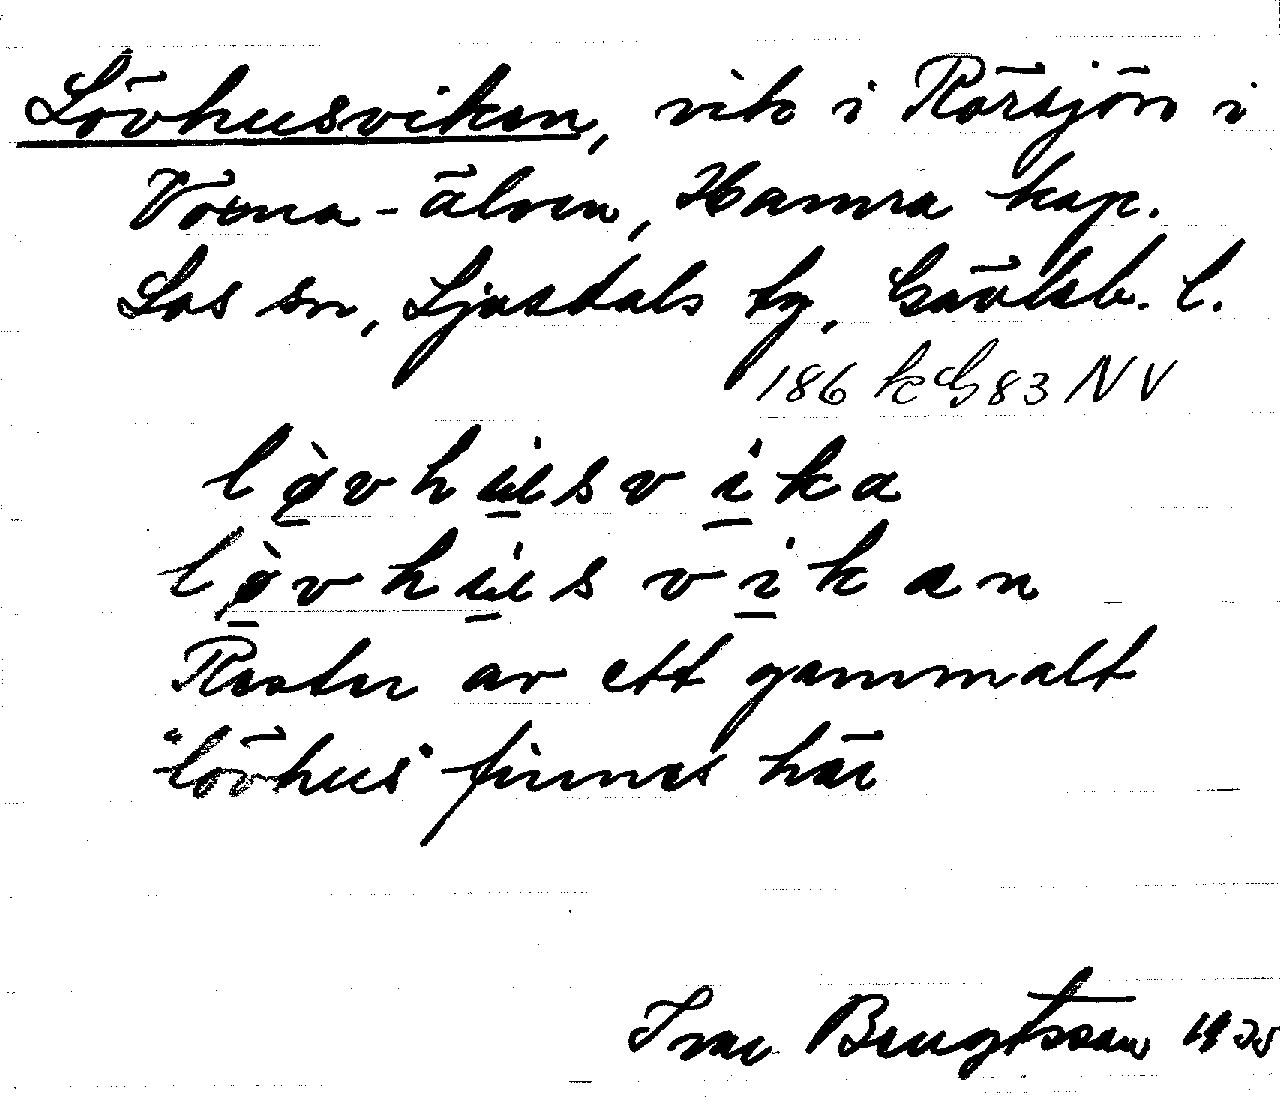 Lövhusviken, vik i Rörsjön i
Voxna-älven, Hamra kap.
Los sn, Ljusdals tg, Gävleb. l.
186 kG 83 NV
lø̀vhu̇svika
lø̀vhu̇svikan
Rester av ett gammalt
"lövhus" finnes här
Ivar Bengtsson 1935